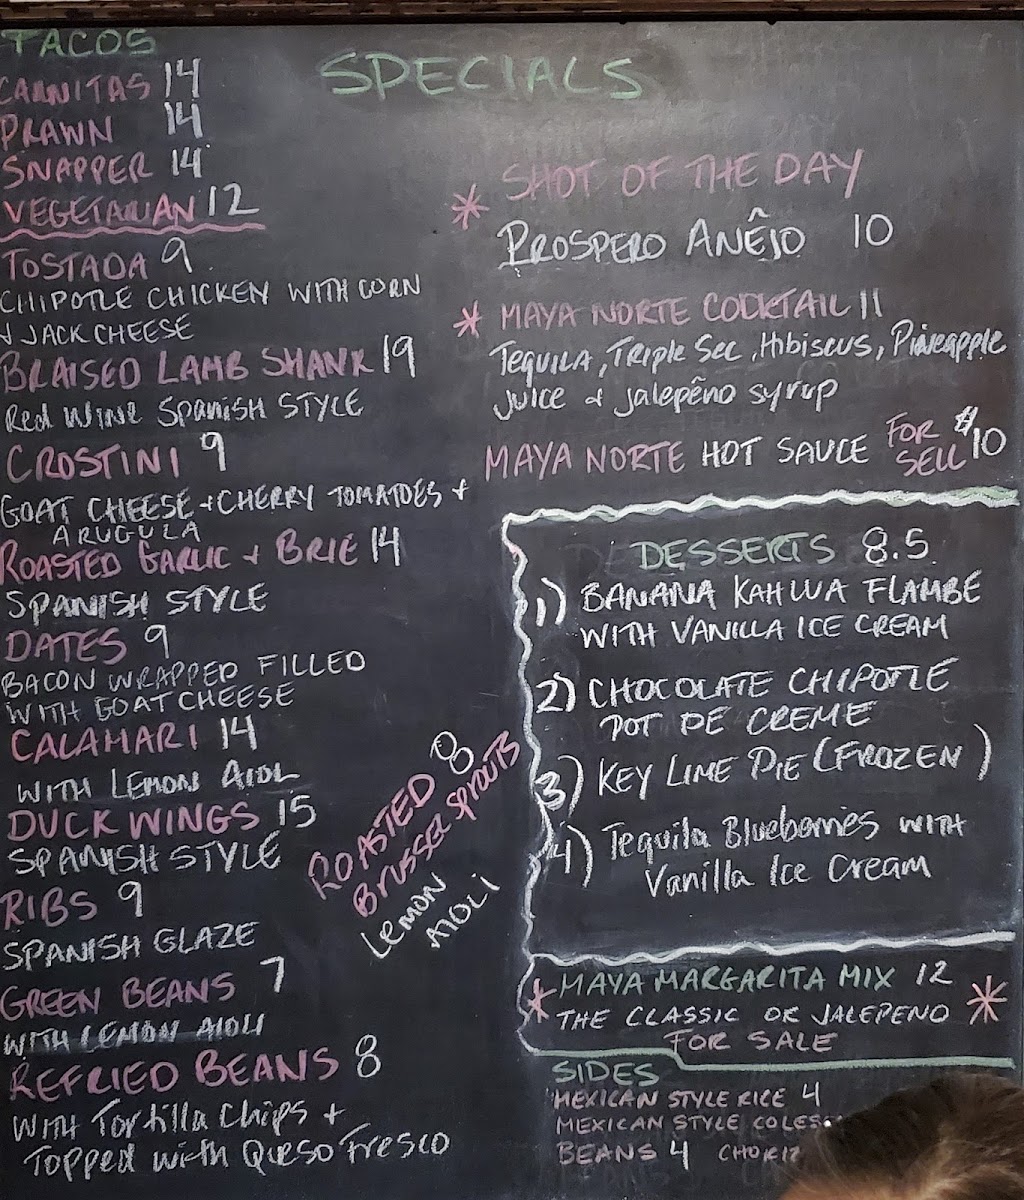 TACOS
CARNITAS 14
PRAWN 14
SNAPPER 14
VEGETARIAN 12
TOSTADA 9
CHIPOTLE CHICKEN WITH CORN
+ JACK CHEESE
BRAISED LAMB SHANK 19
Red WINE SpanisH STYLE
CROSTINI 9
GOAT CHEESE + CHERRY TOMATOES +
ARUGULA
ROASTED GARLIC + BRIE 14
SPANISH STYLE
DATES 9
BACON WRAPPED FILLED
WITH GOAT CHEESE
CALAMARI 14
WITH LEMON AIOL
DUCK WINGS 15
SPANISH STYLE
RIBS 9
SPANISH GLAZE
GREEN BEANS 7
WITH LEMON AIOLI
REFRIED BEANS 8
WITH Tortilla Chips +
Topped with Queso Fresco
ROASTED 8
BRUSSEL Sprouts
Lemon
AIOLI
SPECIALS
* SHOT OF THE DAY
PROSPERO ANÊJO 10
* MAYA NORTE COCKTAIL 11
Tequila, Triple Sec, Hibiscus, Pineapple
Juice + jalepêno syrup
MAYA NORTE HOT SAUCE FOR SELL $10
DESSERTS 8.5
1) BANANA KAHLUA FLAMBE
WITH VANILLA ICE CREAM
2) CHOCOLATE CHIPOTLE
POT DE CREME
3) KEY LIME PIE (FROZEN)
4) Tequila Blueberries with
Vanilla Ice Cream
* MAYA MARGARITA MIX 12 *
THE CLASSIC OR JALEPENO
FOR SALE
SIDES
MEXICAN STYLE RICE 4
MEXICAN STYLE
BEANS 4